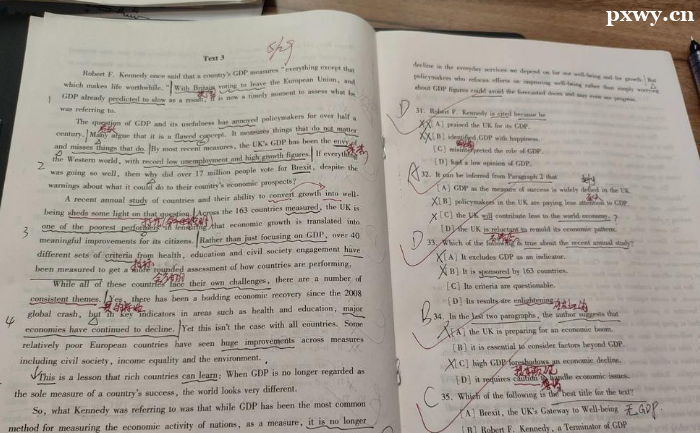 pxwy.cn
Text 3
5/29
Robert F. Kennedy once said that a country's GDP measures "everything except that
which makes life worthwhile." With Britain voting to leave the European Union, and
1
GDP already predicted to slow as a result, it is now a timely moment to assess what he
was referring to.
The question of GDP and its usefulness has annoyed policymakers for over half a
century. Many argue that it is a flawed concept. It measures things that do not matter
and misses things that do. By most recent measures, the UK's GDP has been the envy of
2
the Western world, with record low unemployment and high growth figures. If everything
was going so well, then why did over 17 million people vote for Brexit, despite the
warnings about what it could do to their country's economic prospects?
A recent annual study of countries and their ability to convert growth into well-
being sheds some light on that question. Across the 163 countries measured, the UK is
3
one of the poorest performers in ensuring that economic growth is translated into
meaningful improvements for its citizens. Rather than just focusing on GDP, over 40
different sets of criteria from health, education and civil society engagement have
been measured to get a more rounded assessment of how countries are performing.
While all of these countries face their own challenges, there are a number of
consistent themes. Yes, there has been a budding economic recovery since the 2008
4
global crash, but in key indicators in areas such as health and education, major
economies have continued to decline. Yet this isn't the case with all countries. Some
relatively poor European countries have seen huge improvements across measures
including civil society, income equality and the environment.
This is a lesson that rich countries can learn: When GDP is no longer regarded as
the sole measure of a country's success, the world looks very different.
So, what Kennedy was referring to was that while GDP has been the most common
method for measuring the economic activity of nations, as a measure, it is no longer
decline in the everyday services we depend on for our well-being and for growth. But
policymakers who refocus efforts on improving well-being rather than simply worrying
about GDP figures could avoid the forecasted doom and may even see progress.
D
31. Robert F. Kennedy is cited because he
[A] praised the UK for its GDP.
[B] identified GDP with happiness.
[C] misinterpreted the role of GDP.
[D] had a low opinion of GDP.
A
32. It can be inferred from Paragraph 2 that
[A] GDP as the measure of success is widely defied in the UK.
[B] policymakers in the UK are paying less attention to GDP.
[C] the UK will contribute less to the world economy.
[D] the UK is reluctant to remold its economic pattern.
D
33. Which of the following is true about the recent annual study?
[A] It excludes GDP as an indicator.
[B] It is sponsored by 163 countries.
[C] Its criteria are questionable.
[D] Its results are enlightening.
B
34. In the last two paragraphs, the author suggests that
[A] the UK is preparing for an economic boom.
[B] it is essential to consider factors beyond GDP.
[C] high GDP foreshadows an economic decline.
[D] it requires caution to handle economic issues.
C
35. Which of the following is the best title for the text?
[A] Brexit, the UK's Gateway to Well-being 无GDP
[B] Robert F. Kennedy, a Terminator of GDP